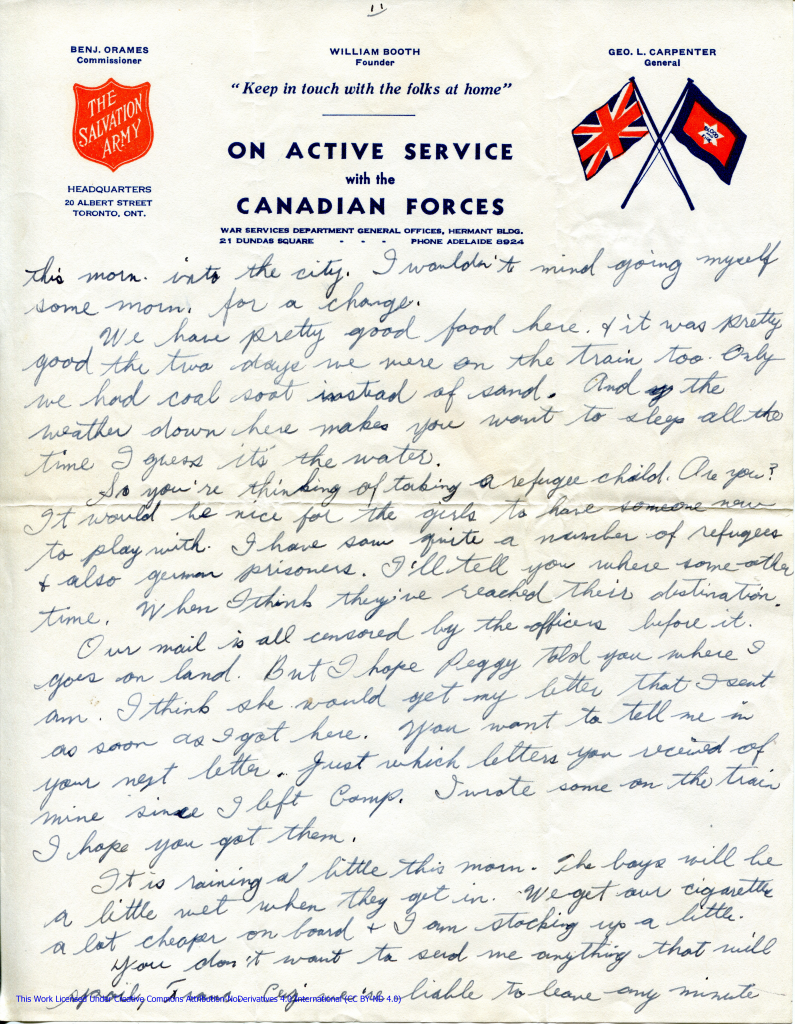 11
BENJ. ORAMES
Commissioner
WILLIAM BOOTH
Founder
GEO. L. CARPENTER
General
"Keep in touch with the folks at home"
THE
SALVATION
ARMY
ON ACTIVE SERVICE
with the
CANADIAN FORCES
HEADQUARTERS
20 ALBERT STREET
TORONTO, ONT.
WAR SERVICES DEPARTMENT GENERAL OFFICES, HERMANT BLDG.
21 DUNDAS SQUARE - - - PHONE ADELAIDE 8924
this morn. into the city. I wouldn't mind going myself
some morn. for a change.
We have pretty good food here. & it was pretty
good the two days we were on the train too. Only
we had coal soot instead of sand. And the
weather down here makes you want to sleep all the
time I guess it's the water.
So you're thinking of taking a refugee child. Are you?
It would be nice for the girls to have someone new
to play with. I have saw quite a number of refugees
& also german prisoners. I'll tell you where some other
time. When I think they've reached their distination.
Our mail is all censored by the officers before it.
goes on land. But I hope Peggy told you where I
am. I think she would get my letter that I sent
as soon as I got here. You want to tell me in
your next letter. Just which letters you received of
mine since I left Camp. I wrote some on the train
I hope you got them.
It is raining a little this morn. The boys will be
a little wet when they get in. We get our cigarettes
a lot cheaper on board & I am stocking up a little.
You don't want to send me anything that will
spoil, we're liable to leave any minute
This Work Licensed Under Creative Commons Attribution-NoDerivatives 4.0 International (CC BY-ND 4.0)